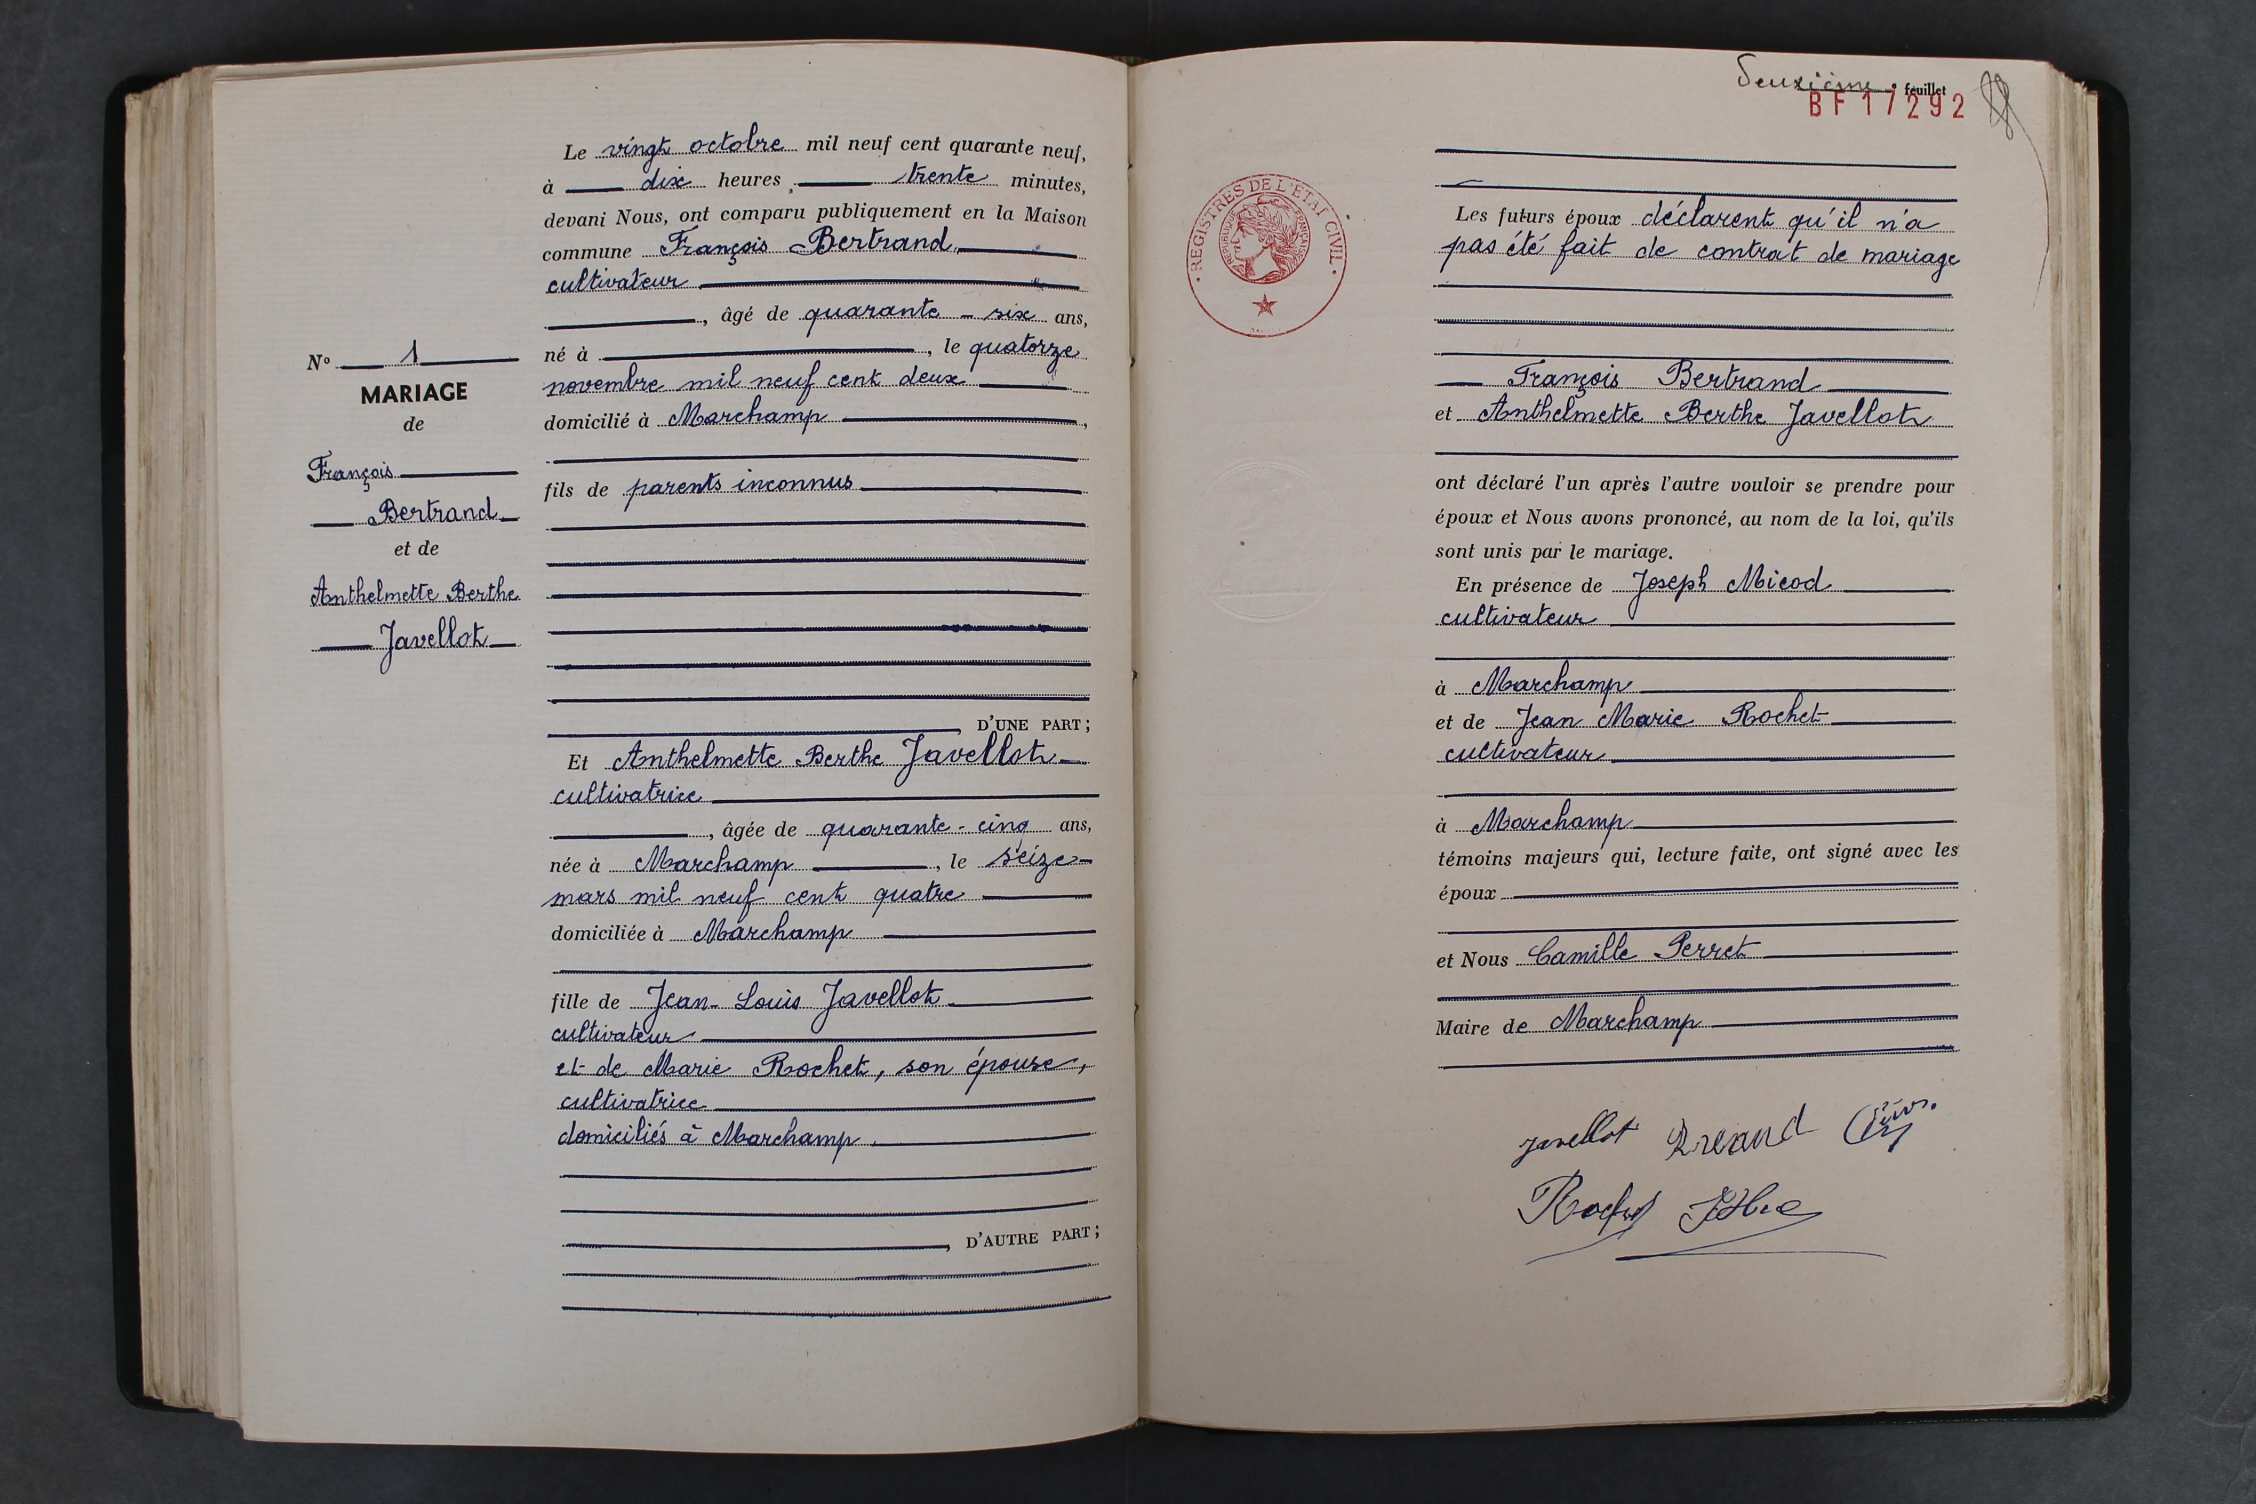 Le vingt octobre mil neuf cent quarante neuf,
à dix heures, trente minutes,
devant Nous, ont comparu publiquement en la Maison
commune François Bertrand
cultivateur
, âgé de quarante-six ans,
né à , le quatorze
novembre mil neuf cent deux
domicilié à Marchamp,
fils de parents inconnus
D'UNE PART;
Et Anthelmette Berthe Javellot
cultivatrice
, âgée de quarante-cinq ans,
née à Marchamp, le seize
mars mil neuf cent quatre
domiciliée à Marchamp
fille de Jean-Louis Javellot
cultivateur
et de Marie Rochet, son épouse,
cultivatrice
domiciliés à Marchamp.
, D'AUTRE PART;
N° 1
MARIAGE
de
François
Bertrand
et de
Anthelmette Berthe
Javellot
Deuxième feuillet
BF17292
REGISTRES DE L'ETAT CIVIL
REPUBLIQUE FRANÇAISE
Les futurs époux déclarent qu'il n'a
pas été fait de contrat de mariage
François Bertrand
et Anthelmette Berthe Javellot
ont déclaré l'un après l'autre vouloir se prendre pour
époux et Nous avons prononcé, au nom de la loi, qu'ils
sont unis par le mariage.
En présence de Joseph Micod
cultivateur
à Marchamp
et de Jean Marie Rochet
cultivateur
à Marchamp
témoins majeurs qui, lecture faite, ont signé avec les
époux
et Nous Camille Perret
Maire de Marchamp
Javellot
Rochet